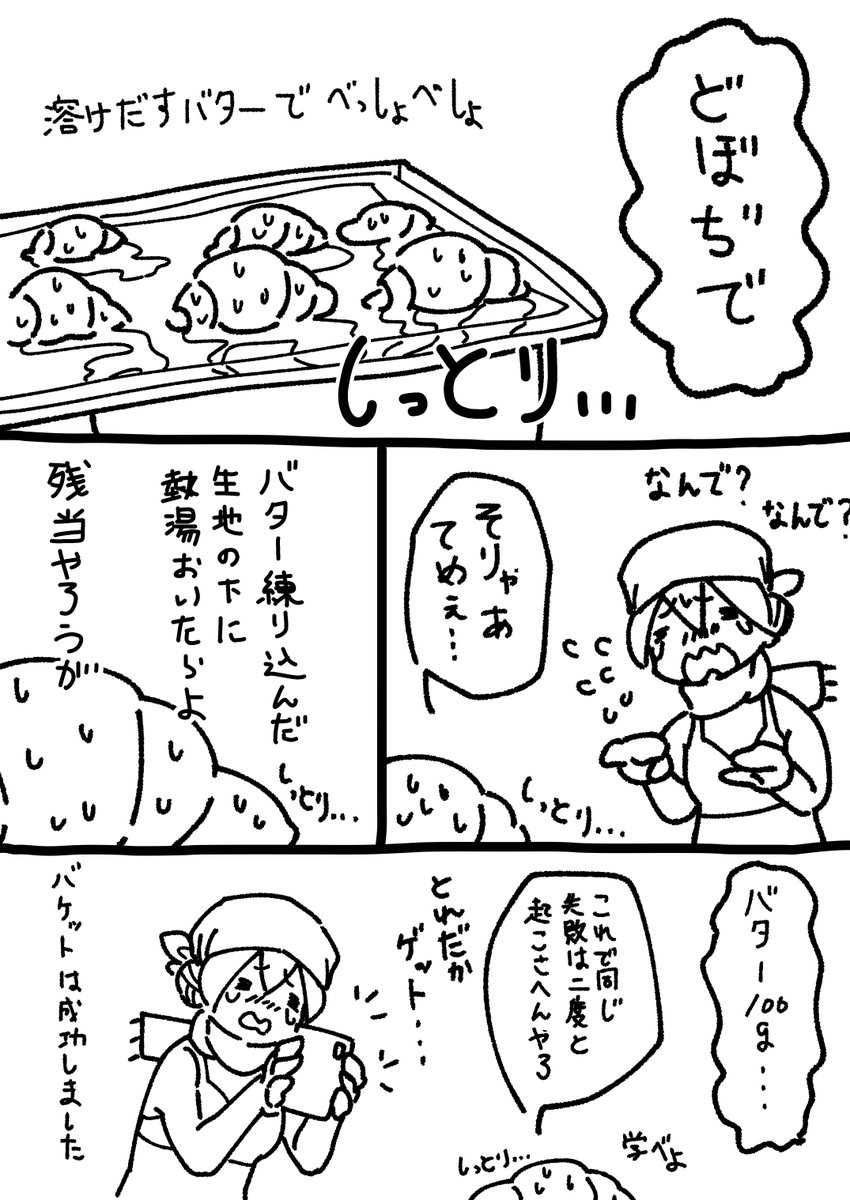 どぼぢで
溶けだすバターで べっしょべしょ
しっとり…
なんで?
なんで?
そりゃあ
てめぇ…
しっとり…
バター練り込んだ
生地の下に
熱湯おいたらよ
残当やろうが
しっとり…
バター100g…
これで同じ
失敗は二度と
起こさへんやろ
学べよ
しっとり…
とれだか
ゲット…
バケットは成功しました